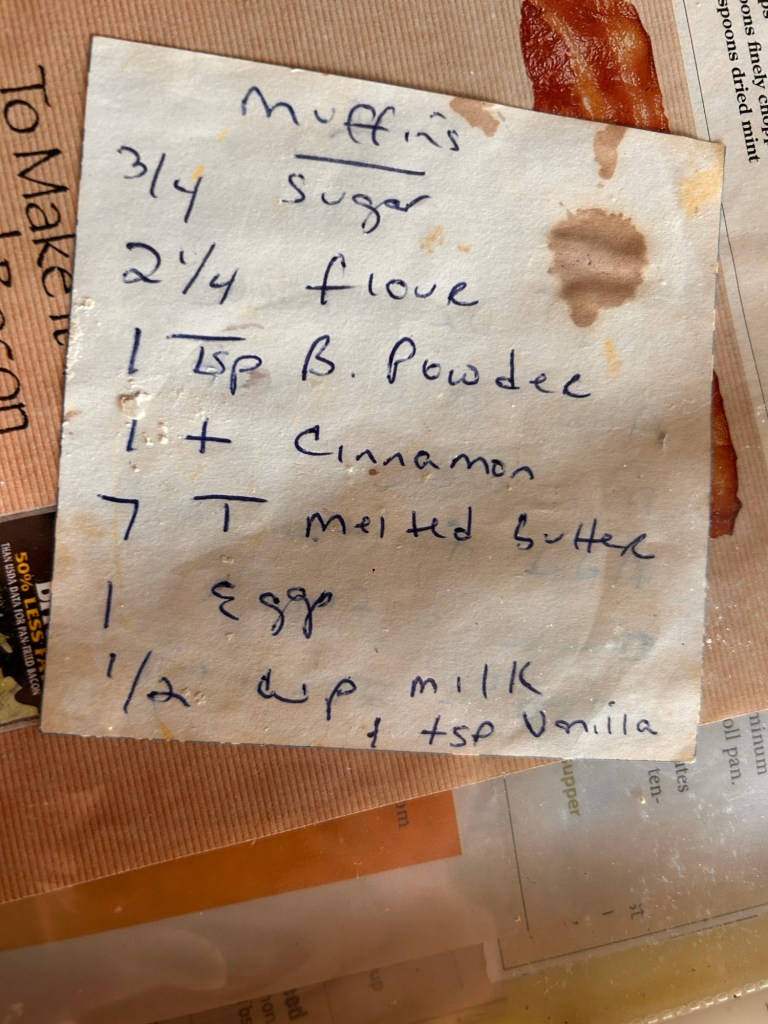 Muffins
3/4 Sugar
2 1/4 flour
1 Tsp B. Powder
1 t Cinnamon
7 T melted butter
1 Egg
1/2 cup milk
1 tsp Vanilla
To Make it
Bacon
50% LESS FAT
THAN USDA DATA FOR PAN-FRIED BACON
ps
oons finely chopp
spoons dried mint
minum
oil pan.
utes
ten-
upper
om
st
up